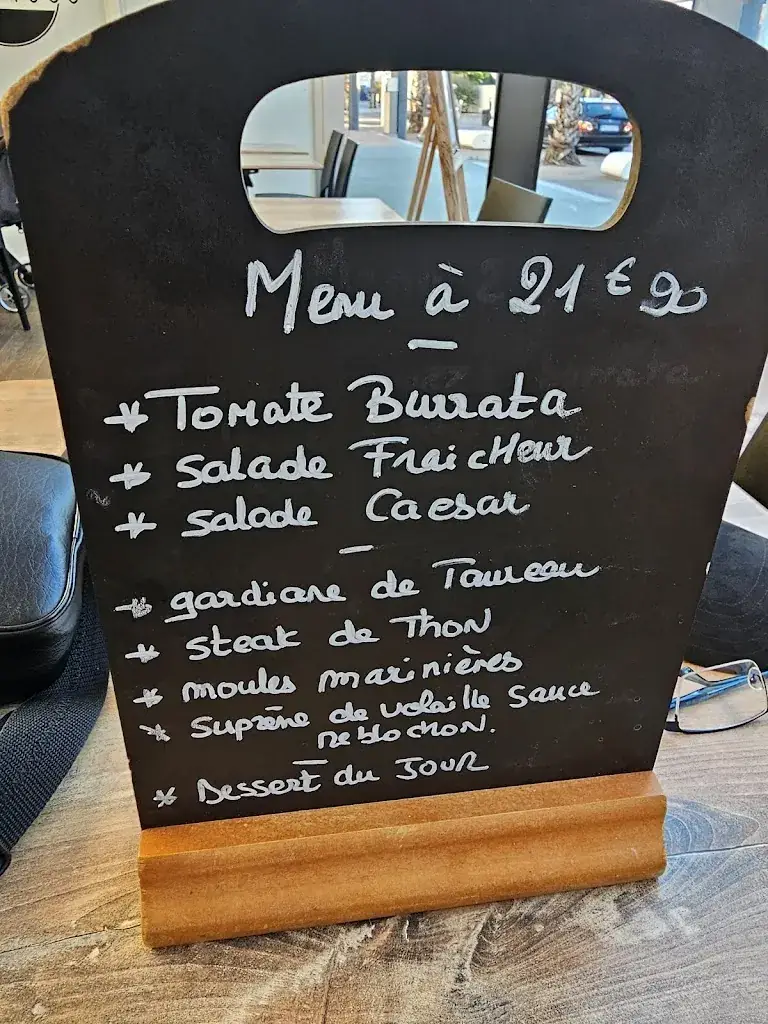 Menu à 21€90
* Tomate Burrata
* Salade Fraicheur
* Salade Caesar
* gardiane de Taureau
* steak de Thon
* moules marinières
* Suprême de volaille Sauce
reblochon.
* Dessert du Jour